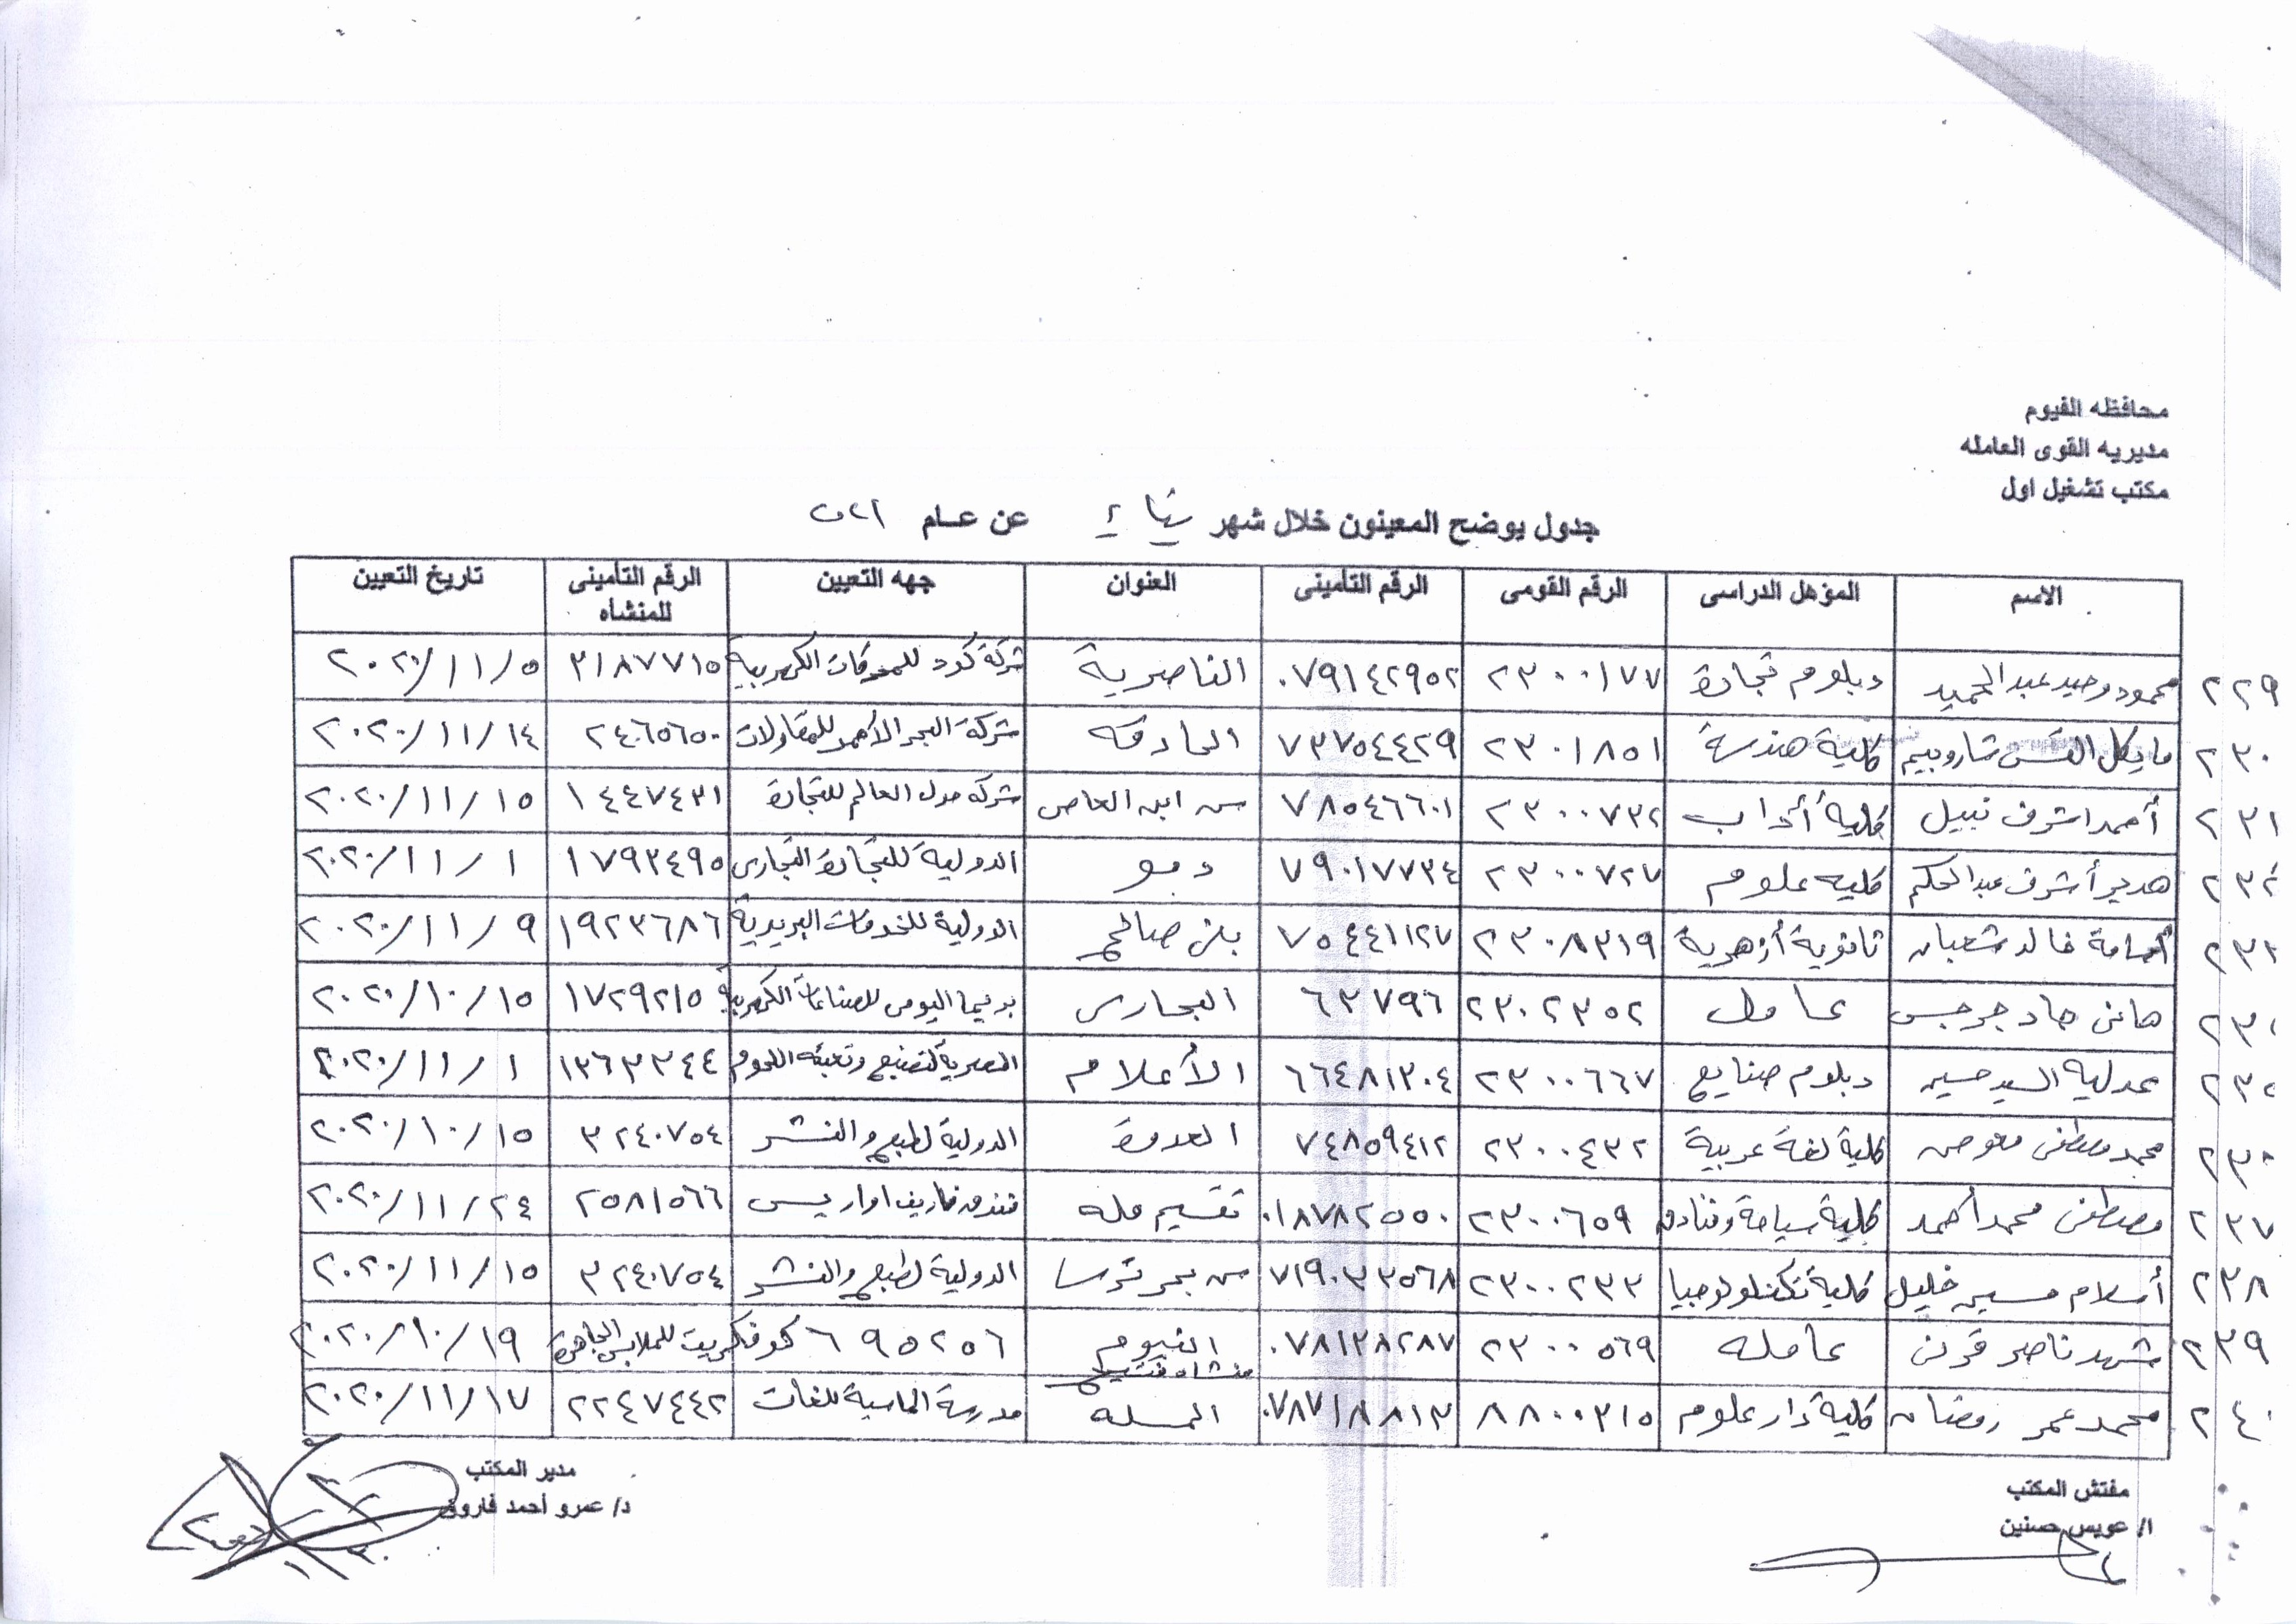 محافظه الفيوم
مديريه القوى العامله
مكتب تشغيل اول
جدول يوضح المعينون خلال شهر يناير عن عـام ٢٠٢١
الاسم المؤهل الدراسى الرقم القومى الرقم التأمينى العنوان جهه التعيين الرقم التأمينى للمنشاه تاريخ التعيين
٢٢٩ محمود وحيد عبد الحميد دبلوم تجارة ٢٣٠٠١٧٧ ٠٧٩١٤٢٩٥٢ الناصرية شركة كود للمحركات الكهربية ٣١٨٧٧١٥ ٢٠٢٠/١١/٥
٢٣٠ مايكل القس شاروبيم كلية هندسة ٢٣٠١٨٥١ ٧٣٧٥٤٤٢٩ الحادقه شركة البحر الأحمر للمقاولات ٢٤٠٦٥٦٥٠ ٢٠٢٠/١١/١٤
٢٣١ أحمد اشرف نبيل كلية أداب ٢٣٠٠٧٣٢ ٧٨٥٤٦٦٠١ س ابن العاص شركة حول العالم للتجارة ١٤٤٧٤٣١ ٢٠٢٠/١١/١٥
٢٣٢ هدير أشرف عبد الحكم كليه علوم ٢٣٠٠٧٢٧ ٧٩٠١٧٧٣٤ دمو الدولية للتجارة التجارى ١٧٩٣٤٩٥ ٢٠٢٠/١١/١
٢٣٣ أسامة خالد شعبان ثانوية أزهرية ٢٣٠٨٣١٩ ٧٥٤٤١١٢٧ بنى صالح الدولية للخدمات البريدية ١٩٢٣٦٨٦ ٢٠٢٠/١١/٩
٢٣٤ هانى جاد جرجس عامل ٢٣٠٢٣٥٢ ٦٣٧٩٦ البحارى اليومى للصناعات الكهربية ١٧٢٩٢١٥ ٢٠٢٠/١٠/١٥
٢٣٥ عدلية السيد حسين دبلوم صنايع ٢٣٠٠٦٦٧ ٦٦٤٨١٣٠٤ الأعلام المصرية لتصنيع وتعبئه اللحوم ١٣٦٣٣٤٤ ٢٠٢٠/١١/١
٢٣٦ محمد مصطفى معوض كلية لغة عربية ٢٣٠٠٤٣٢ ٧٤٨٥٩٤١٢ العدوة الدولية لطبع والنشر ٣٢٤٠٧٥٤ ٢٠٢٠/١٠/١٥
٢٣٧ مصطفى محمد أحمد كلية سياحة وفنادق ٢٣٠٠٦٥٩ ٠١٨٧٨٢٥٥٠ تقسيم مله فندق فاريف اواريس ٢٥٨١٥٦٦ ٢٠٢٠/١١/٢٤
٢٣٨ أسلام حسين خليل كلية تكنولوجيا ٢٣٠٠٢٣٣ ٧١٩٠٣٣٥٦٨ س بحر ترسا الدولية لطبع والنشر ٣٢٤٠٧٥٤ ٢٠٢٠/١١/١٥
٢٣٩ شهد ناصر قرنى عامله ٢٣٠٠٥٦٩ ٠٧٨١٣٨٢٨٧ الفيوم منشاه فتيح ٦٩٥٢٥٦ كوفكريت للملابس الجاهزة ٢٠٢٠/١٠/١٩
٢٤٠ محمد عمر رمضان كلية دار علوم ٨٨٠٠٣١٥ ٠٧٨٧١٨٨١٣ المسله مدرسة الماسية للغات ٢٢٤٧٤٤٢ ٢٠٢٠/١١/١٧
مفتش المكتب
ا/ عويس حسنين
مدير المكتب
د/ عمرو أحمد فاروق